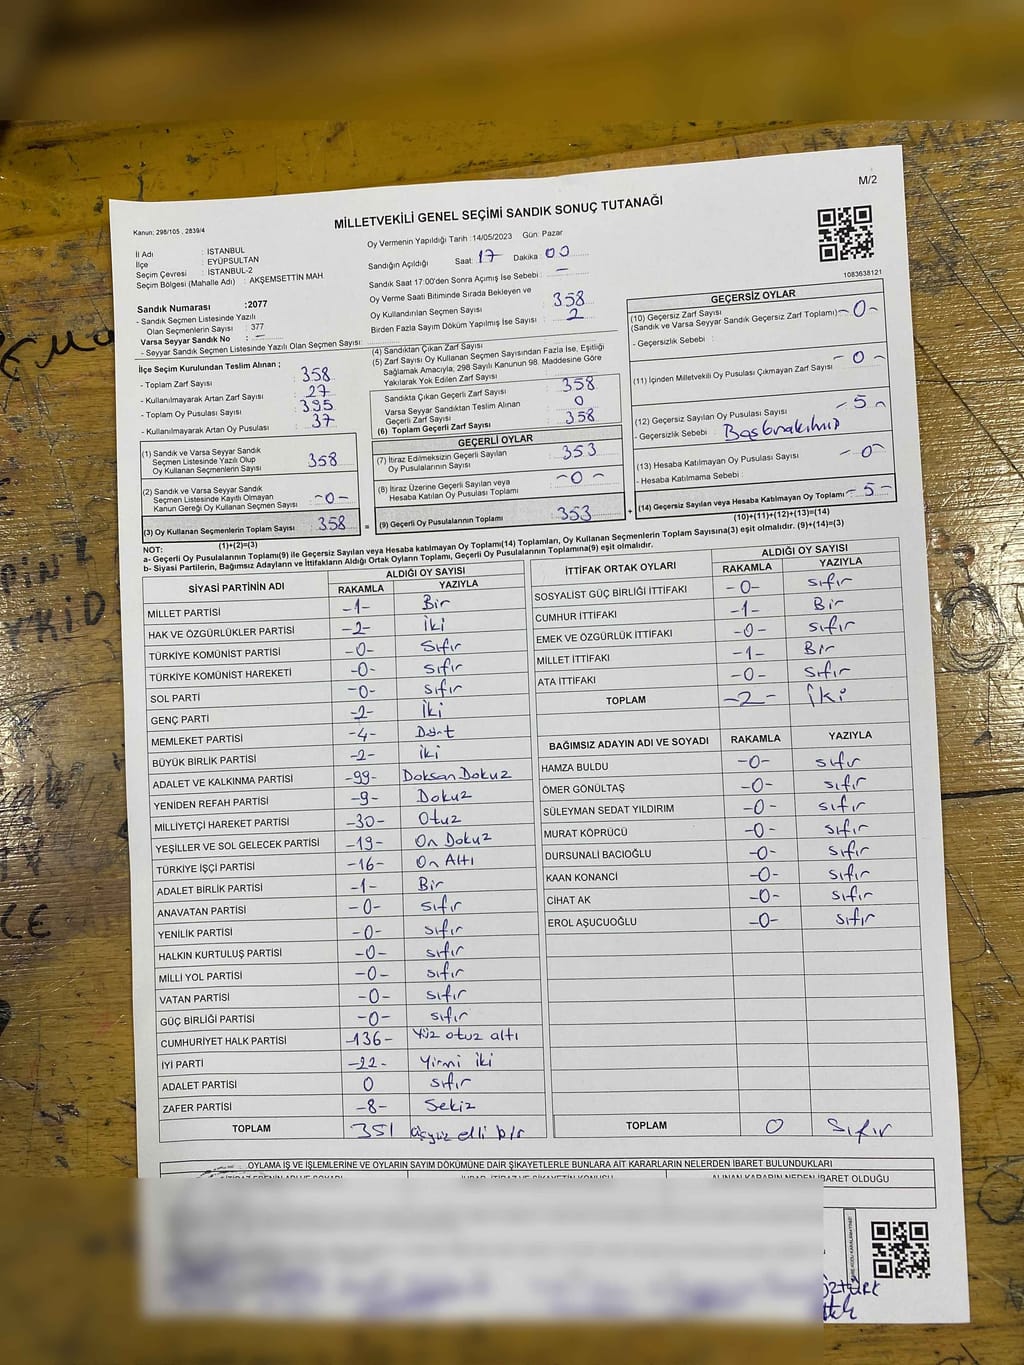 M/2
MİLLETVEKİLİ GENEL SEÇİMİ SANDIK SONUÇ TUTANAĞI
Kanun; 298/105 , 2839/4
İl Adı : İSTANBUL
İlçe : EYÜPSULTAN
Seçim Çevresi : İSTANBUL-2
Seçim Bölgesi (Mahalle Adı) : AKŞEMSETTİN MAH
Sandık Numarası :2077
- Sandık Seçmen Listesinde Yazılı
Olan Seçmenlerin Sayısı : 377
Varsa Seyyar Sandık No : –
- Seyyar Sandık Seçmen Listesinde Yazılı Olan Seçmen Sayısı :
Oy Vermenin Yapıldığı Tarih :14/05/2023 Gün: Pazar
Sandığın Açıldığı Saat: 17 Dakika 00
Sandık Saat 17:00'den Sonra Açımış İse Sebebi : –
Oy Verme Saati Bitiminde Sırada Bekleyen ve
Oy Kullandırılan Seçmen Sayısı : 358
Birden Fazla Sayım Döküm Yapılmış İse Sayısı : 2
1083638121
İlçe Seçim Kurulundan Teslim Alınan ;
- Toplam Zarf Sayısı : 358
- Kullanılmayarak Artan Zarf Sayısı : 27
- Toplam Oy Pusulası Sayısı : 395
- Kullanılmayarak Artan Oy Pusulası : 37
(1) Sandık ve Varsa Seyyar Sandık
Seçmen Listesinde Yazılı Olup
Oy Kullanan Seçmenlerin Sayısı 358
(2) Sandık ve Varsa Seyyar Sandık
Seçmen Listesinde Kayıtlı Olmayan
Kanun Gereği Oy Kullanan Seçmen Sayısı -0-
(3) Oy Kullanan Seçmenlerin Toplam Sayısı 358 =
(1)+(2)=(3)
(4) Sandıktan Çıkan Zarf Sayısı
(5) Zarf Sayısı Oy Kullanan Seçmen Sayısından Fazla İse, Eşitliği
Sağlamak Amacıyla, 298 Sayılı Kanunun 98. Maddesine Göre
Yakılarak Yok Edilen Zarf Sayısı
Sandıkta Çıkan Geçerli Zarf Sayısı : 358
Varsa Seyyar Sandıktan Teslim Alınan
Geçerli Zarf Sayısı : 0
(6) Toplam Geçerli Zarf Sayısı : 358
GEÇERLİ OYLAR
(7) İtiraz Edilmeksizin Geçerli Sayılan
Oy Pusulalarının Sayısı : 353
(8) İtiraz Üzerine Geçerli Sayılan veya
Hesaba Katılan Oy Pusulası Toplamı : -0-
(9) Geçerli Oy Pusulalarının Toplamı : 353 +
GEÇERSİZ OYLAR
(10) Geçersiz Zarf Sayısı
(Sandık ve Varsa Seyyar Sandık Geçersiz Zarf Toplamı) -0-
- Geçersizlik Sebebi :
(11) İçinden Milletvekili Oy Pusulası Çıkmayan Zarf Sayısı -0-
(12) Geçersiz Sayılan Oy Pusulası Sayısı -5-
- Geçersizlik Sebebi : Boş bırakılmış
(13) Hesaba Katılmayan Oy Pusulası Sayısı -0-
- Hesaba Katılmama Sebebi :
(14) Geçersiz Sayılan veya Hesaba Katılmayan Oy Toplamı -5-
(10)+(11)+(12)+(13)=(14)
NOT:
a- Geçerli Oy Pusulalarının Toplamı(9) ile Geçersiz Sayılan veya Hesaba katılmayan Oy Toplamı(14) Toplamları, Oy Kullanan Seçmenlerin Toplam Sayısına(3) eşit olmalıdır. (9)+(14)=(3)
b- Siyasi Partilerin, Bağımsız Adayların ve İttifakların Aldığı Ortak Oyların Toplamı, Geçerli Oy Pusulalarının Toplamına(9) eşit olmalıdır.
SİYASİ PARTİNİN ADI ALDIĞI OY SAYISI
RAKAMLA YAZIYLA
MİLLET PARTİSİ -1- Bir
HAK VE ÖZGÜRLÜKLER PARTİSİ -2- İki
TÜRKİYE KOMÜNİST PARTİSİ -0- Sıfır
TÜRKİYE KOMÜNİST HAREKETİ -0- sıfır
SOL PARTİ -0- sıfır
GENÇ PARTİ -2- İki
MEMLEKET PARTİSİ -4- Dört
BÜYÜK BİRLİK PARTİSİ -2- iki
ADALET VE KALKINMA PARTİSİ -99- Doksan Dokuz
YENİDEN REFAH PARTİSİ -9- Dokuz
MİLLİYETÇİ HAREKET PARTİSİ -30- Otuz
YEŞİLLER VE SOL GELECEK PARTİSİ -19- On Dokuz
TÜRKİYE İŞÇİ PARTİSİ -16- On Altı
ADALET BİRLİK PARTİSİ -1- Bir
ANAVATAN PARTİSİ -0- sıfır
YENİLİK PARTİSİ -0- sıfır
HALKIN KURTULUŞ PARTİSİ -0- sıfır
MİLLİ YOL PARTİSİ -0- sıfır
VATAN PARTİSİ -0- sıfır
GÜÇ BİRLİĞİ PARTİSİ -0- sıfır
CUMHURİYET HALK PARTİSİ -136- Yüz otuz altı
İYİ PARTİ -22- Yirmi iki
ADALET PARTİSİ 0 sıfır
ZAFER PARTİSİ -8- Sekiz
TOPLAM 351 üçyüz elli bir
İTTİFAK ORTAK OYLARI ALDIĞI OY SAYISI
RAKAMLA YAZIYLA
SOSYALİST GÜÇ BİRLİĞİ İTTİFAKI -0- sıfır
CUMHUR İTTİFAKI -1- Bir
EMEK VE ÖZGÜRLÜK İTTİFAKI -0- sıfır
MİLLET İTTİFAKI -1- Bir
ATA İTTİFAKI -0- sıfır
TOPLAM -2- İki
BAĞIMSIZ ADAYIN ADI VE SOYADI RAKAMLA YAZIYLA
HAMZA BULDU -0- sıfır
ÖMER GÖNÜLTAŞ -0- sıfır
SÜLEYMAN SEDAT YILDIRIM -0- sıfır
MURAT KÖPRÜCÜ -0- sıfır
DURSUNALİ BACIOĞLU -0- sıfır
KAAN KONANCİ -0- sıfır
CİHAT AK -0- sıfır
EROL AŞUCUOĞLU -0- sıfır
TOPLAM 0 Sıfır
OYLAMA İŞ VE İŞLEMLERİNE VE OYLARIN SAYIM DÖKÜMÜNE DAİR ŞİKAYETLERLE BUNLARA AİT KARARLARIN NELERDEN İBARET BULUNDUKLARI
ALINAN KARARIN NEDEN İBARET OLDUĞU